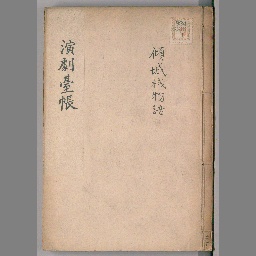 傾城浅物語
演劇臺帳